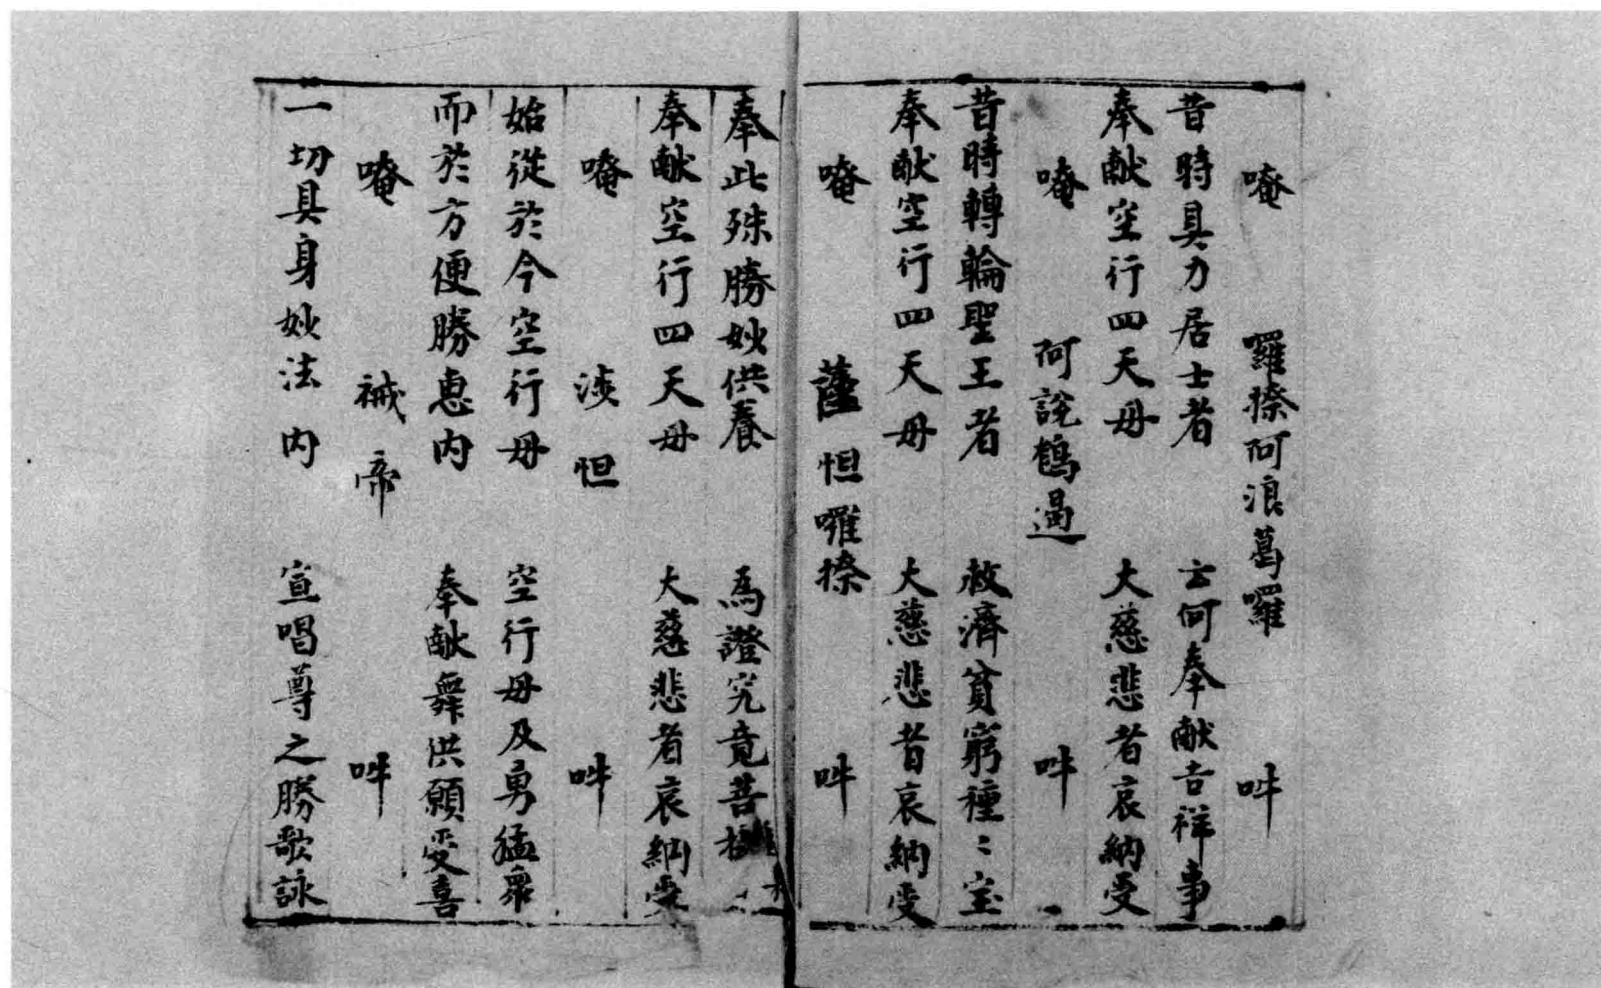 唵 囉捺阿浪葛囉 吽
昔時具力居士者 云何奉献吉祥事
奉献空行四天母 大慈悲者哀納受
唵 阿說鶴過 吽
昔時轉輪聖王者 救濟貧窮種〻宝
奉献空行四天母 大慈悲者哀納受
唵 薩怛囉捺 吽
奉此殊勝妙供養 為證究竟菩
奉献空行四天母 大慈悲者哀納受
唵 怛 吽
始從於今空行母 空行母及勇猛衆
而於方便勝惠内 奉献舞洪願受喜
唵 帝 吽
一切具身妙法内 宣唱尊之勝歌詠